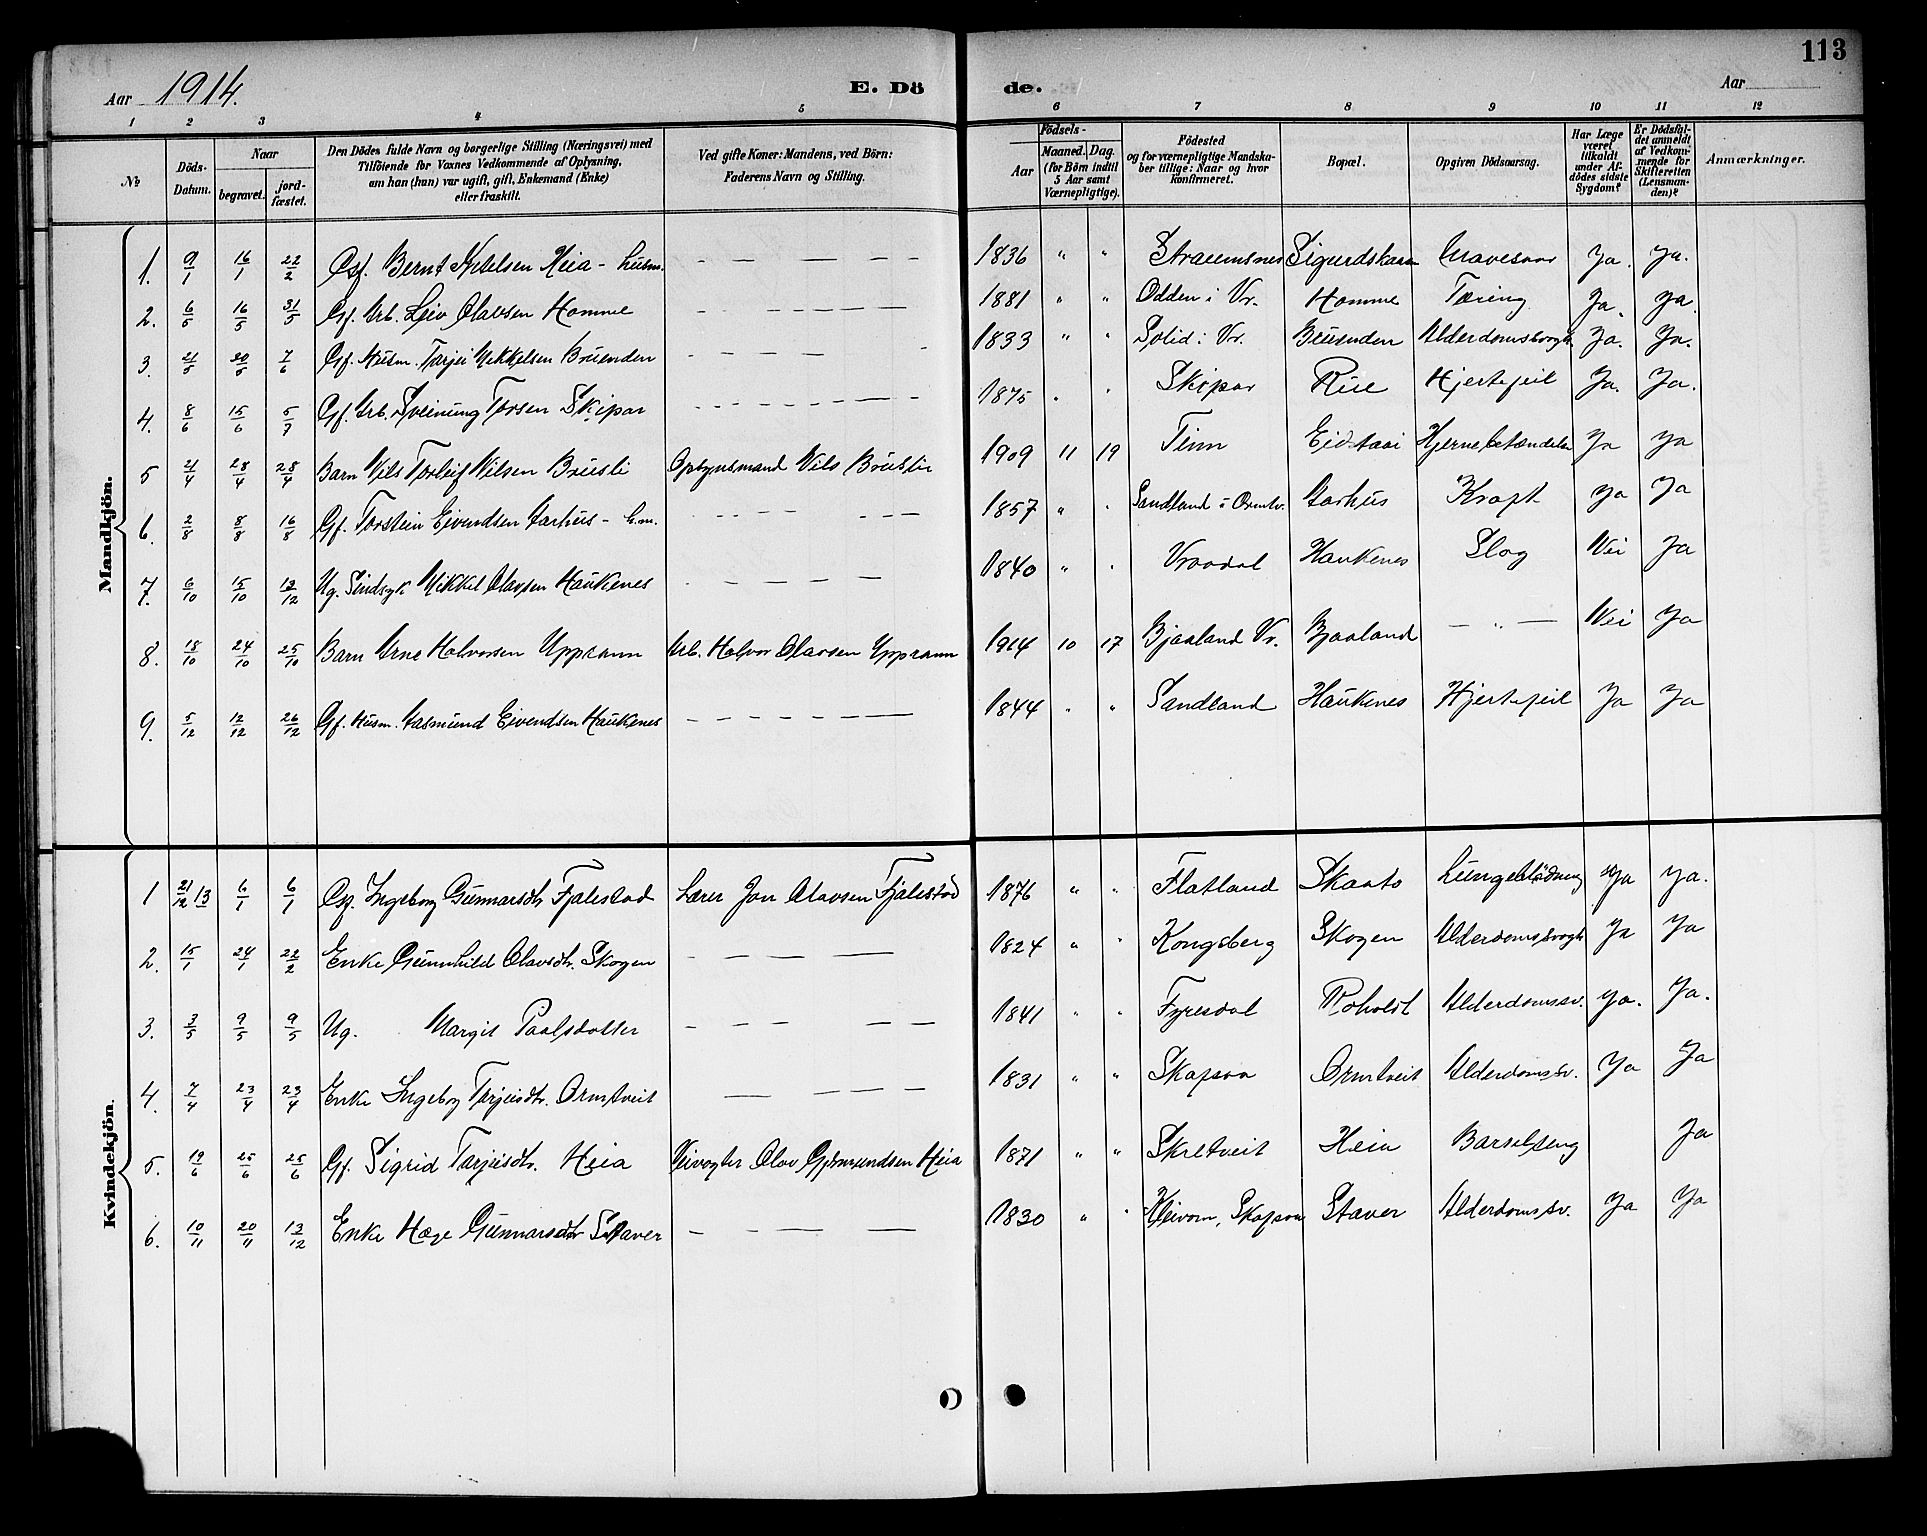 113
Aar 1914. E. Dö de. Aar
1 2 3 4 5 6 7 8 9 10 11 12
№
Döds-Datum.
Naar
begravet.
jord-fæstet.
Den Dödes fulde Navn og borgerlige Stilling (Næringsvei) med
Tilföiende for Voxnes Vedkommende af Oplysning,
om han (hun) var ugift, gift, Enkemand (Enke)
eller fraskilt.
Ved gifte Koner: Mandens, ved Börn:
Faderens Navn og Stilling.
Födsels-
Aar
Maaned. Dag.
(for Börn indtil
5 Aar samt
Værnepligtige).
Födested
og for værnepligtige Mandska-
ber tillige: Naar og hvor
konfirmeret.
Bopæl.
Opgiven Dödsaarsag.
Har Læge
været
tilkaldt
under Af-
dödes sidste
Sygdom?
Er Dödsfal-
det anmeldt
af Vedkom-
mende for
Skifteretten
(Lensman-
den)?
Anmærkninger.
Mandkjön.
1. 9/1 16/1 22/2 Gf. Bernt Heia - husm. — — — — — 1836 " " Straumsnes Sigurdskaas Ja. Ja.
2. 6/5 16/5 31/5 Gf. Arb. Leiv Olavsen Homme - - - — — — — 1881 " " Odden i Vr. Homme Tæring Ja. Ja.
3. 21/5 20/5 7/6 Gf. Husm. Tarjei Mikkelsen Bruenden - — — — - 1833 " " Solid i Vr. Bruenden Alderdomssvagh. Ja. Ja.
4. 8/6 15/6 5/7 Gf. Arb. Sveinung Torsen Skipar - - - - - — — — 1875 " " Skipar Rue Hjertefeil Ja. Ja.
5 21/4 28/4 28/4 Barn Nils Torleif Nilsen Brusli Opsynsmand Nils Brusli 1909 11 19 Tinn Eidstaai Hjernebetændelse Ja Ja
6. 2/8 8/8 16/8 Gf. Torstein Eivindsen Garhus - h.m. - - - — - — — 1857 " " Sandland i Ormtv. Garhus Kræft Ja Ja
7. 6/10 15/10 13/12 Ug. Sindsyk Mikkel Olavsen Haukenes - — — — — 1840 " " Vraadal Haukenes Slag Nei Ja
8. 18/10 24/10 25/10 Barn Arne Halvorsen Upprann Arb. Halvor Olavsen Upprann 1914 10 17 Bjaaland Vr. Bjaaland — " — Nei Ja
9. 5/12 12/12 26/12 Gf. Husm. Aasmund Eivendsen Haukenes - — — — — — — 1844 " " Sandland Haukenes Hjertefeil Ja Ja
Kvindekjön.
1 21/12 13 6/1 6/1 Gf. Ingeborg Gunnarsdtr Fjalestad Lærer Jon Olavsen Fjalestad 1876 " " Flatland Skaato Lungeblödning Ja Ja.
2. 15/1 24/1 22/2 Enke Gunnhild Olavsdtr. Skogen — — — — — 1824 " " Kongsberg Skogen Alderdomssvagh Ja Ja
3. 3/5 9/5 9/5 Ug. Margit Paalsdotter — — — — — 1841 " " Fyresdal Roholdt Alderdomssv. Ja. Ja.
4. 7/4 23/4 23/4 Enke Ingeborg Tarjeisdtr. Ormtveit — — — — — 1831 " " Skafsaa Ormtveit Alderdomssv. Ja Ja
5. 19/6 25/6 25/6 Gf. Sigrid Tarjeisdtr. Heia Veivogter Olav Gjermundsen Heia 1871 " " Skretveit Heia Barselseng Ja
6. 10/11 20/11 13/12 Enke Hæge Gunnarsdtr Staver — — — — 1830 " " Kleivom, Skafsaa Staver Alderdomssv. Ja Ja